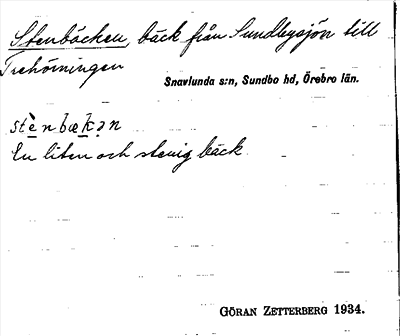 Stenbäcken, bäck från Sundbysjön till
Trehörningen
Snavlunda s:n, Sundbo hd, Örebro län.
stè̱nbæḵən
En liten och stenig bäck.
GÖRAN ZETTERBERG 1934.